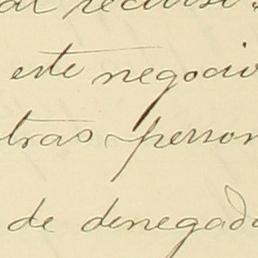 al recurso
este negocio
tras person
de denegad